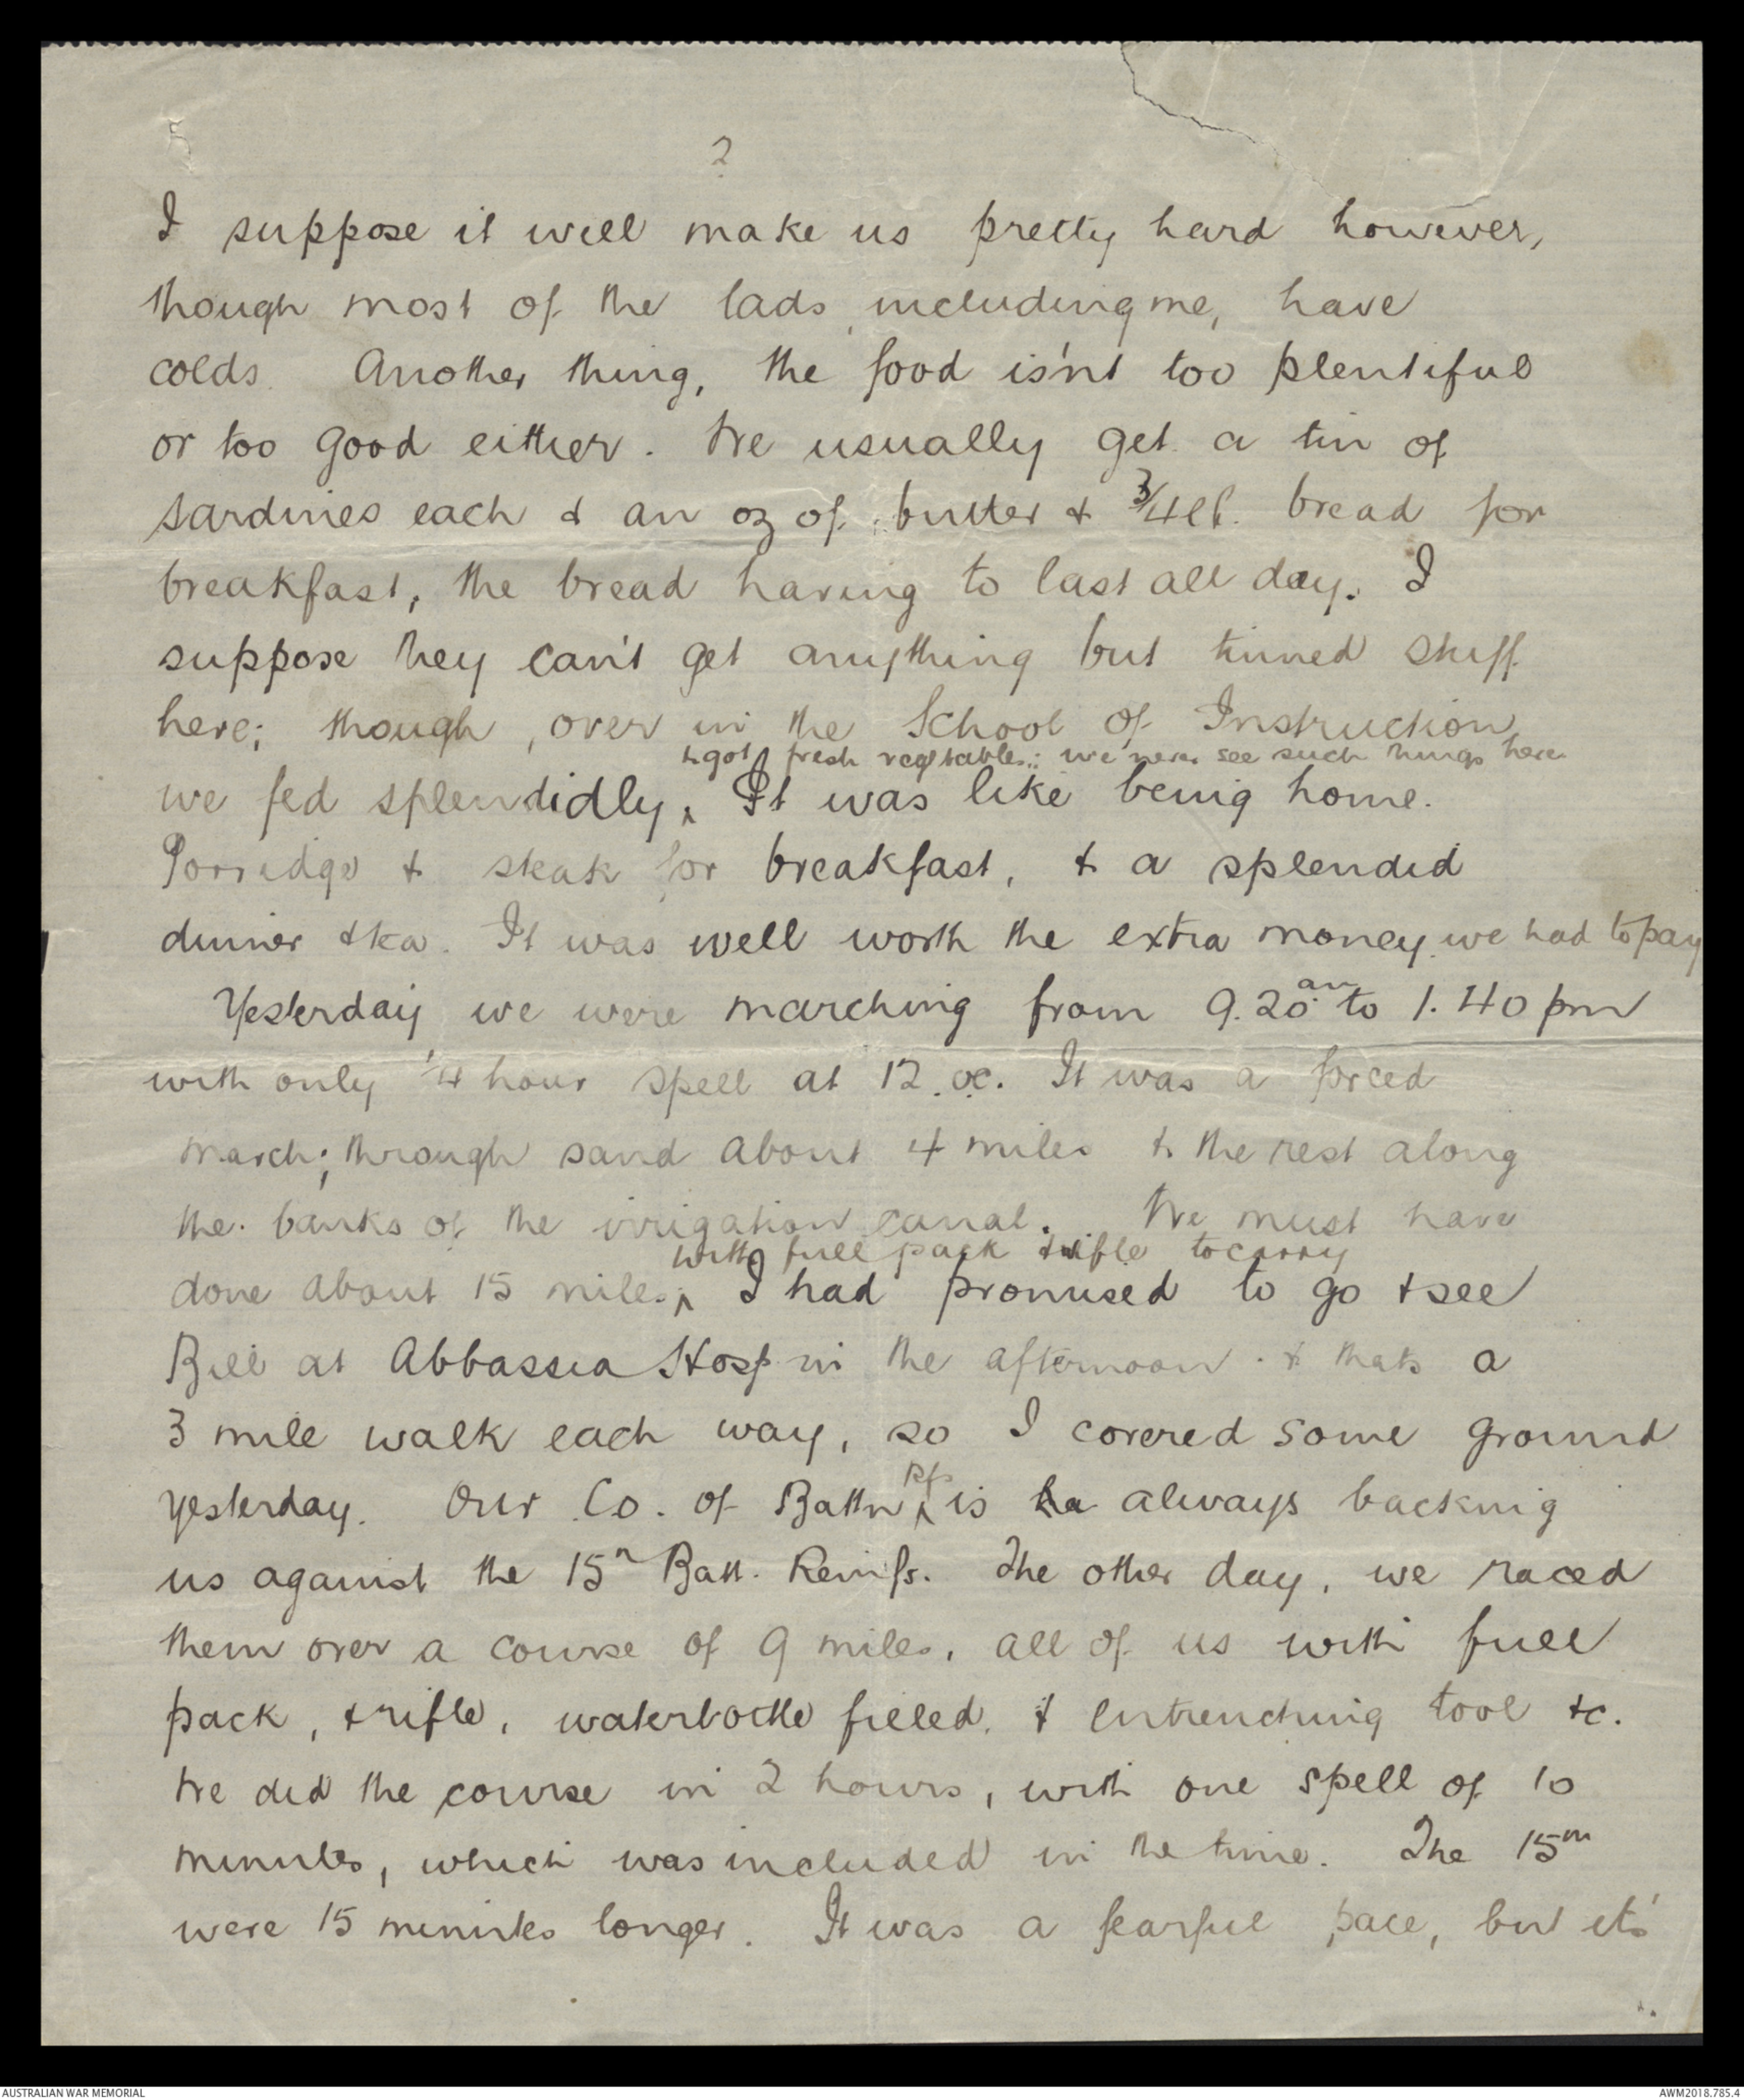 2
I suppose it will make us pretty hard however,
though most of the lads, including me, have
colds. Another thing, the food is'nt too plentiful
or too good either. We usually get a tin of
sardines each & an oz of butter & 3/4 lb. bread for
breakfast, the bread having to last all day. I
suppose they can't get anything but tinned stuff
here; though, over in the School of Instruction
& got fresh vegetables; we never see such things here
we fed splendidly, It was like being home.
Porridge & steak for breakfast, & a splendid
dinner & tea. It was well worth the extra money we had to pay
Yesterday we were marching from 9.20 am to 1.40 pm
with only 1/4 hour spell at 12.oc. It was a forced
march; through sand about 4 miles & the rest along
the banks of the irrigation canal. We must have
with full pack & rifle to carry
done about 15 miles, I had promised to go & see
Bill at Abbassia Hosp in the afternoon & thats a
3 mile walk each way, so I covered some ground
yesterday. Our Co. of Battn Rfs is always backing
us against the 15th Batt. Reinfs. The other day, we raced
them over a course of 9 miles, all of us with full
pack, & rifle, waterbottle filled, & entrenching tool &c.
We did the course in 2 hours, with one spell of 10
minutes, which was included in the time. The 15th
were 15 minutes longer. It was a fearful pace, but it's
AUSTRALIAN WAR MEMORIAL
AWM2018.785.4